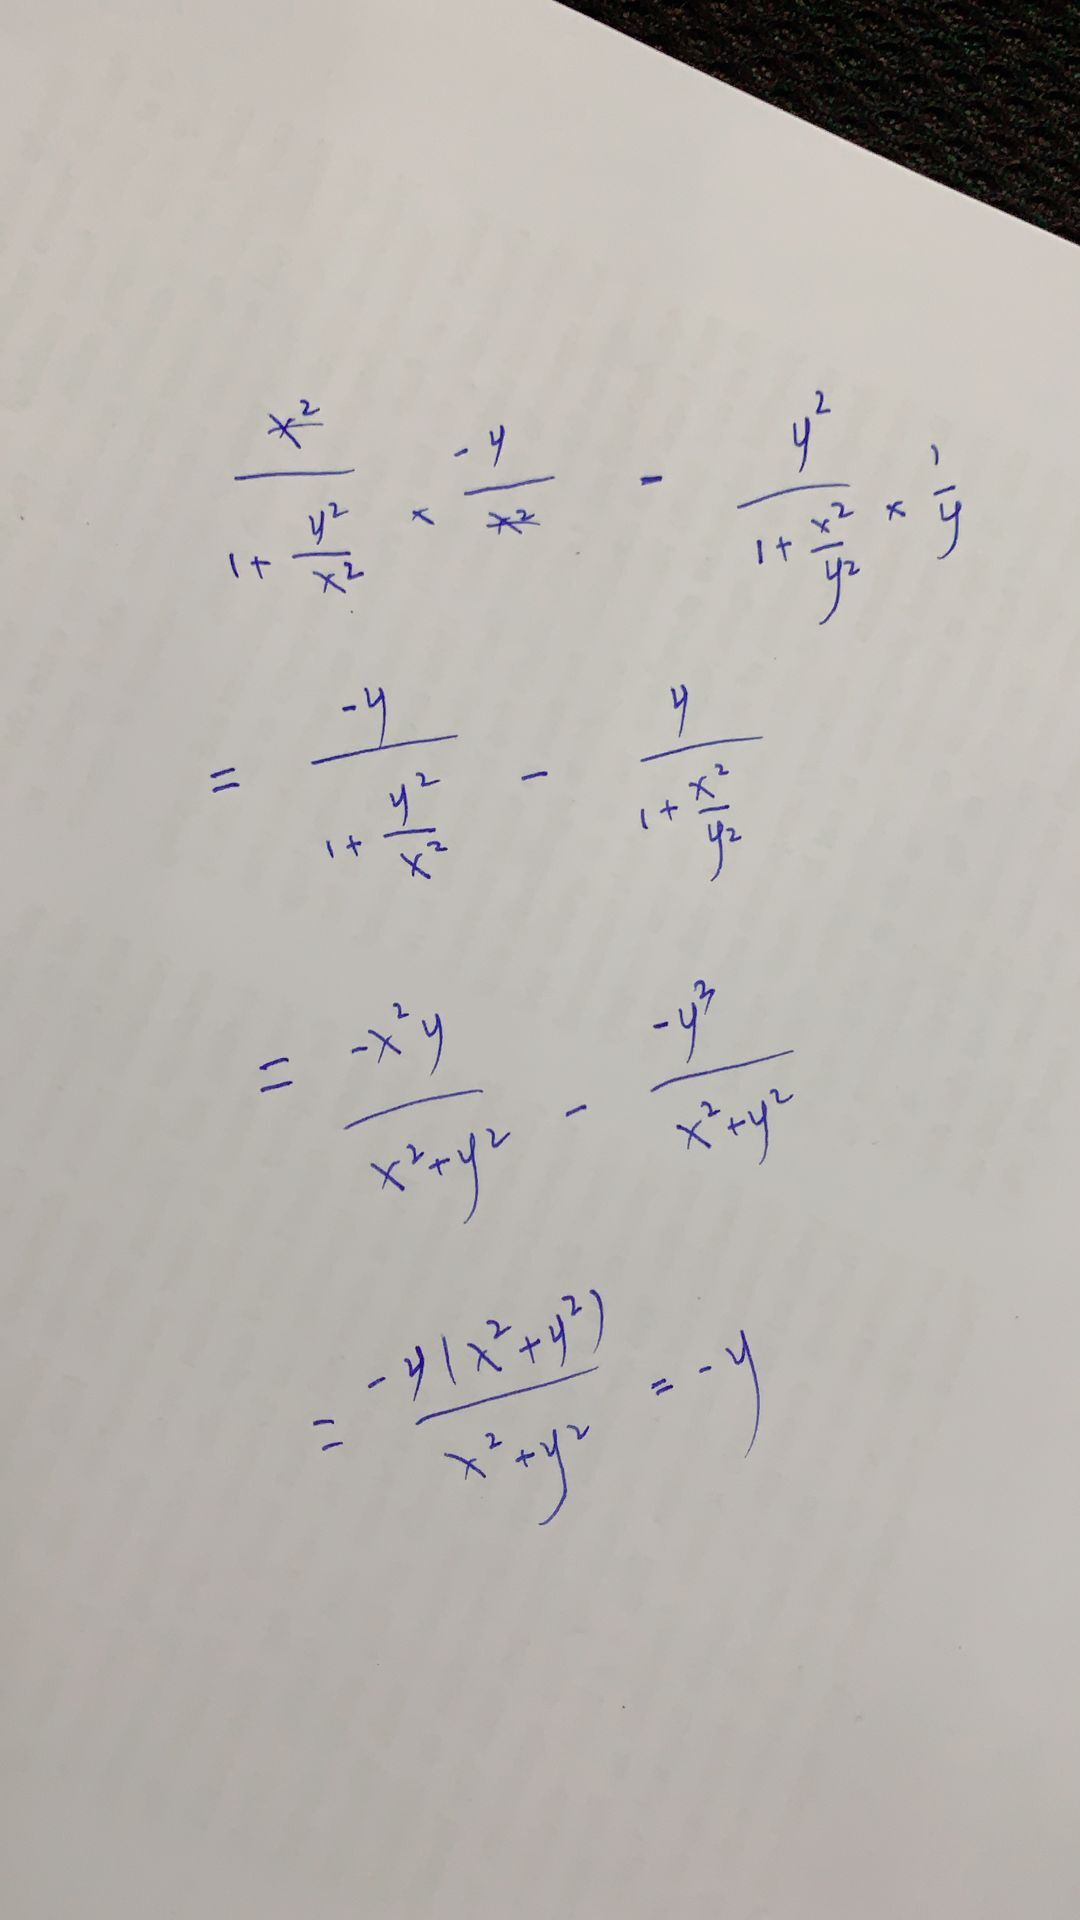 x²/(1 + y²/x²) × -y/x² - y²/(1 + x²/y²) × 1/y
= -y/(1 + y²/x²) - y/(1 + x²/y²)
= -x²y/(x²+y²) - -y³/(x²+y²)
= -y(x²+y²)/(x²+y²) = -y